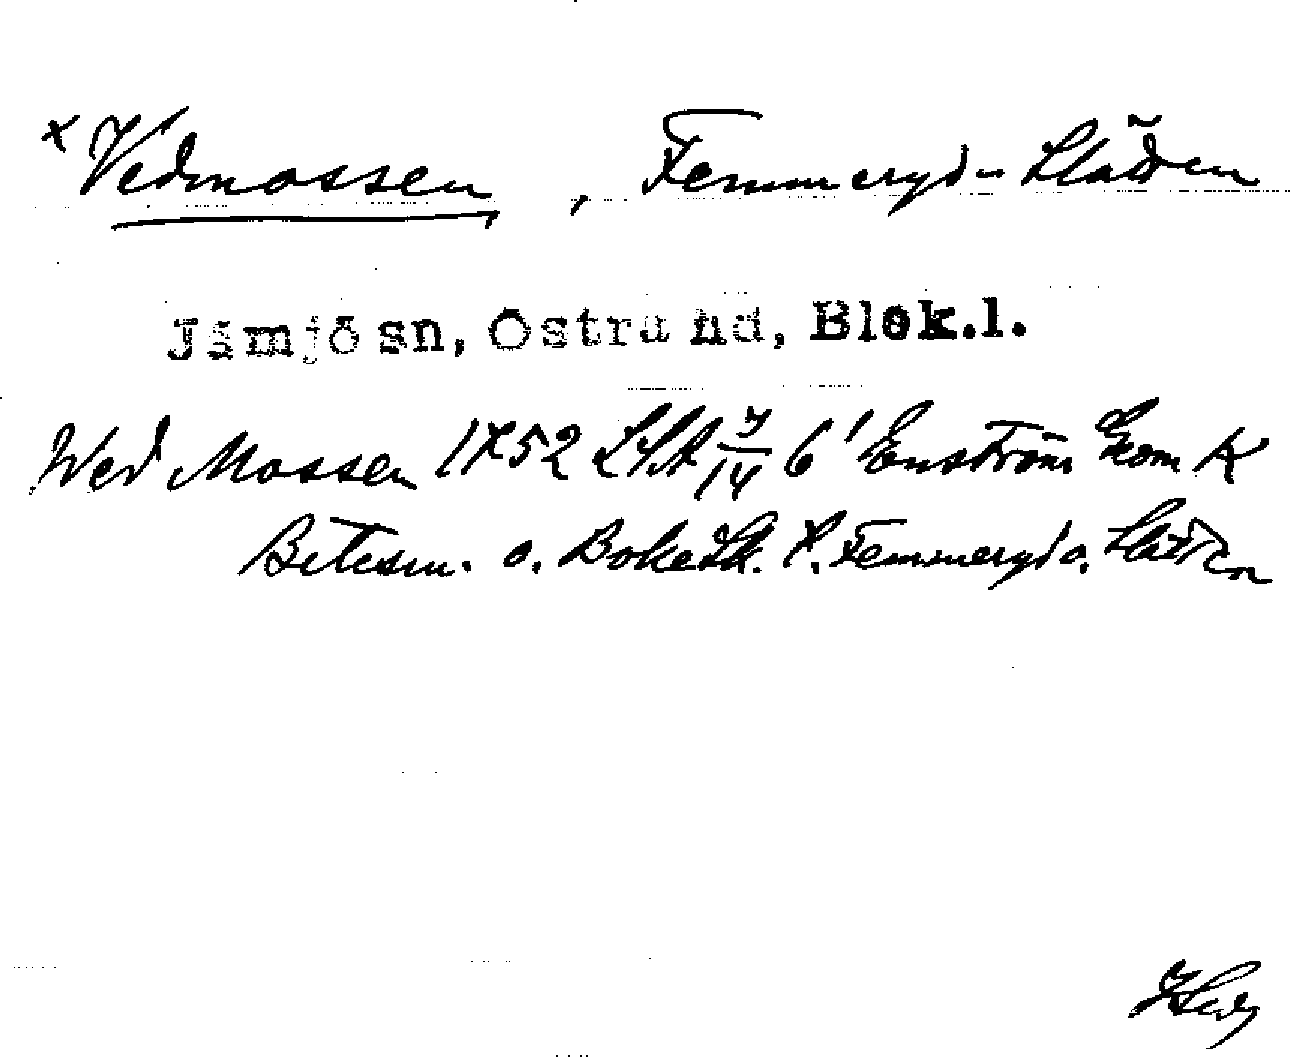 x Vedmossen, Femmeryd - Slätten
Jämjö sn, Östra hd, Blek.l.
Wed Mossen 1752 LSA 7/14 6' Enström Kom K
Betesm. o. Bokesk. t. Femmeryd o. Slätten